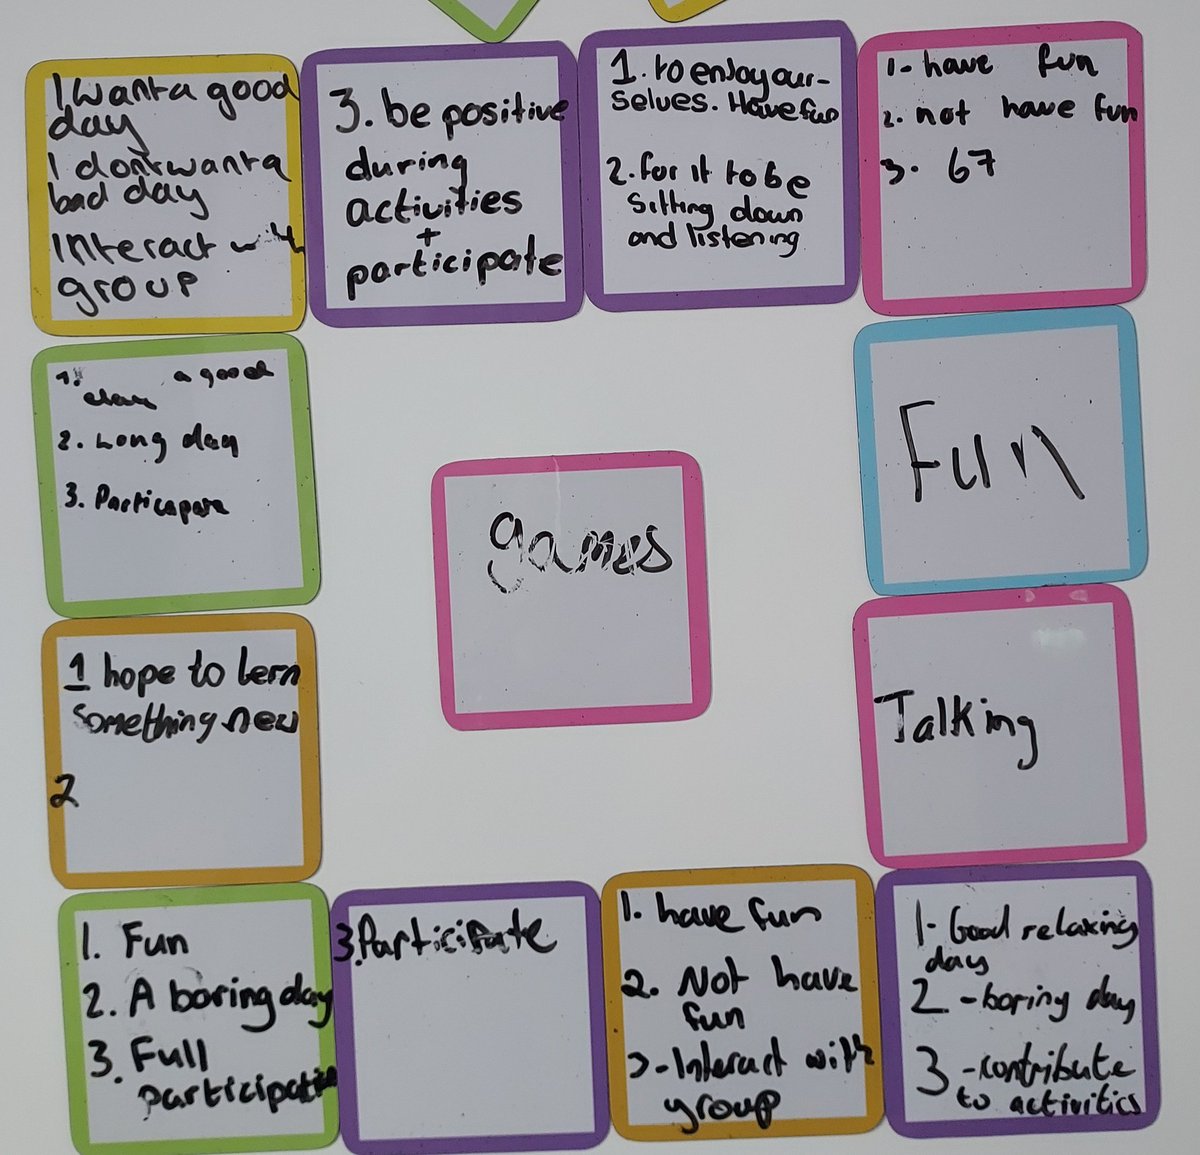 I want a good
day
I dont want a
bad day
Interact with
group
3. be positive
during
activities
+
participate
1. to enjoy our-
selves. Have fun
2. for it to be
sitting down
and listening
1- have fun
2. not have fun
3. 67
1. a good
day
2. Long day
3. Participate
games
Fun
1 hope to lern
something new
2
Talking
1. Fun
2. A boring day
3. Full
participation
3. Participate
1. have fun
2. Not have
fun
3-Interact with
group
1- Good relaxing
day
2 -boring day
3 -contribute
to activities